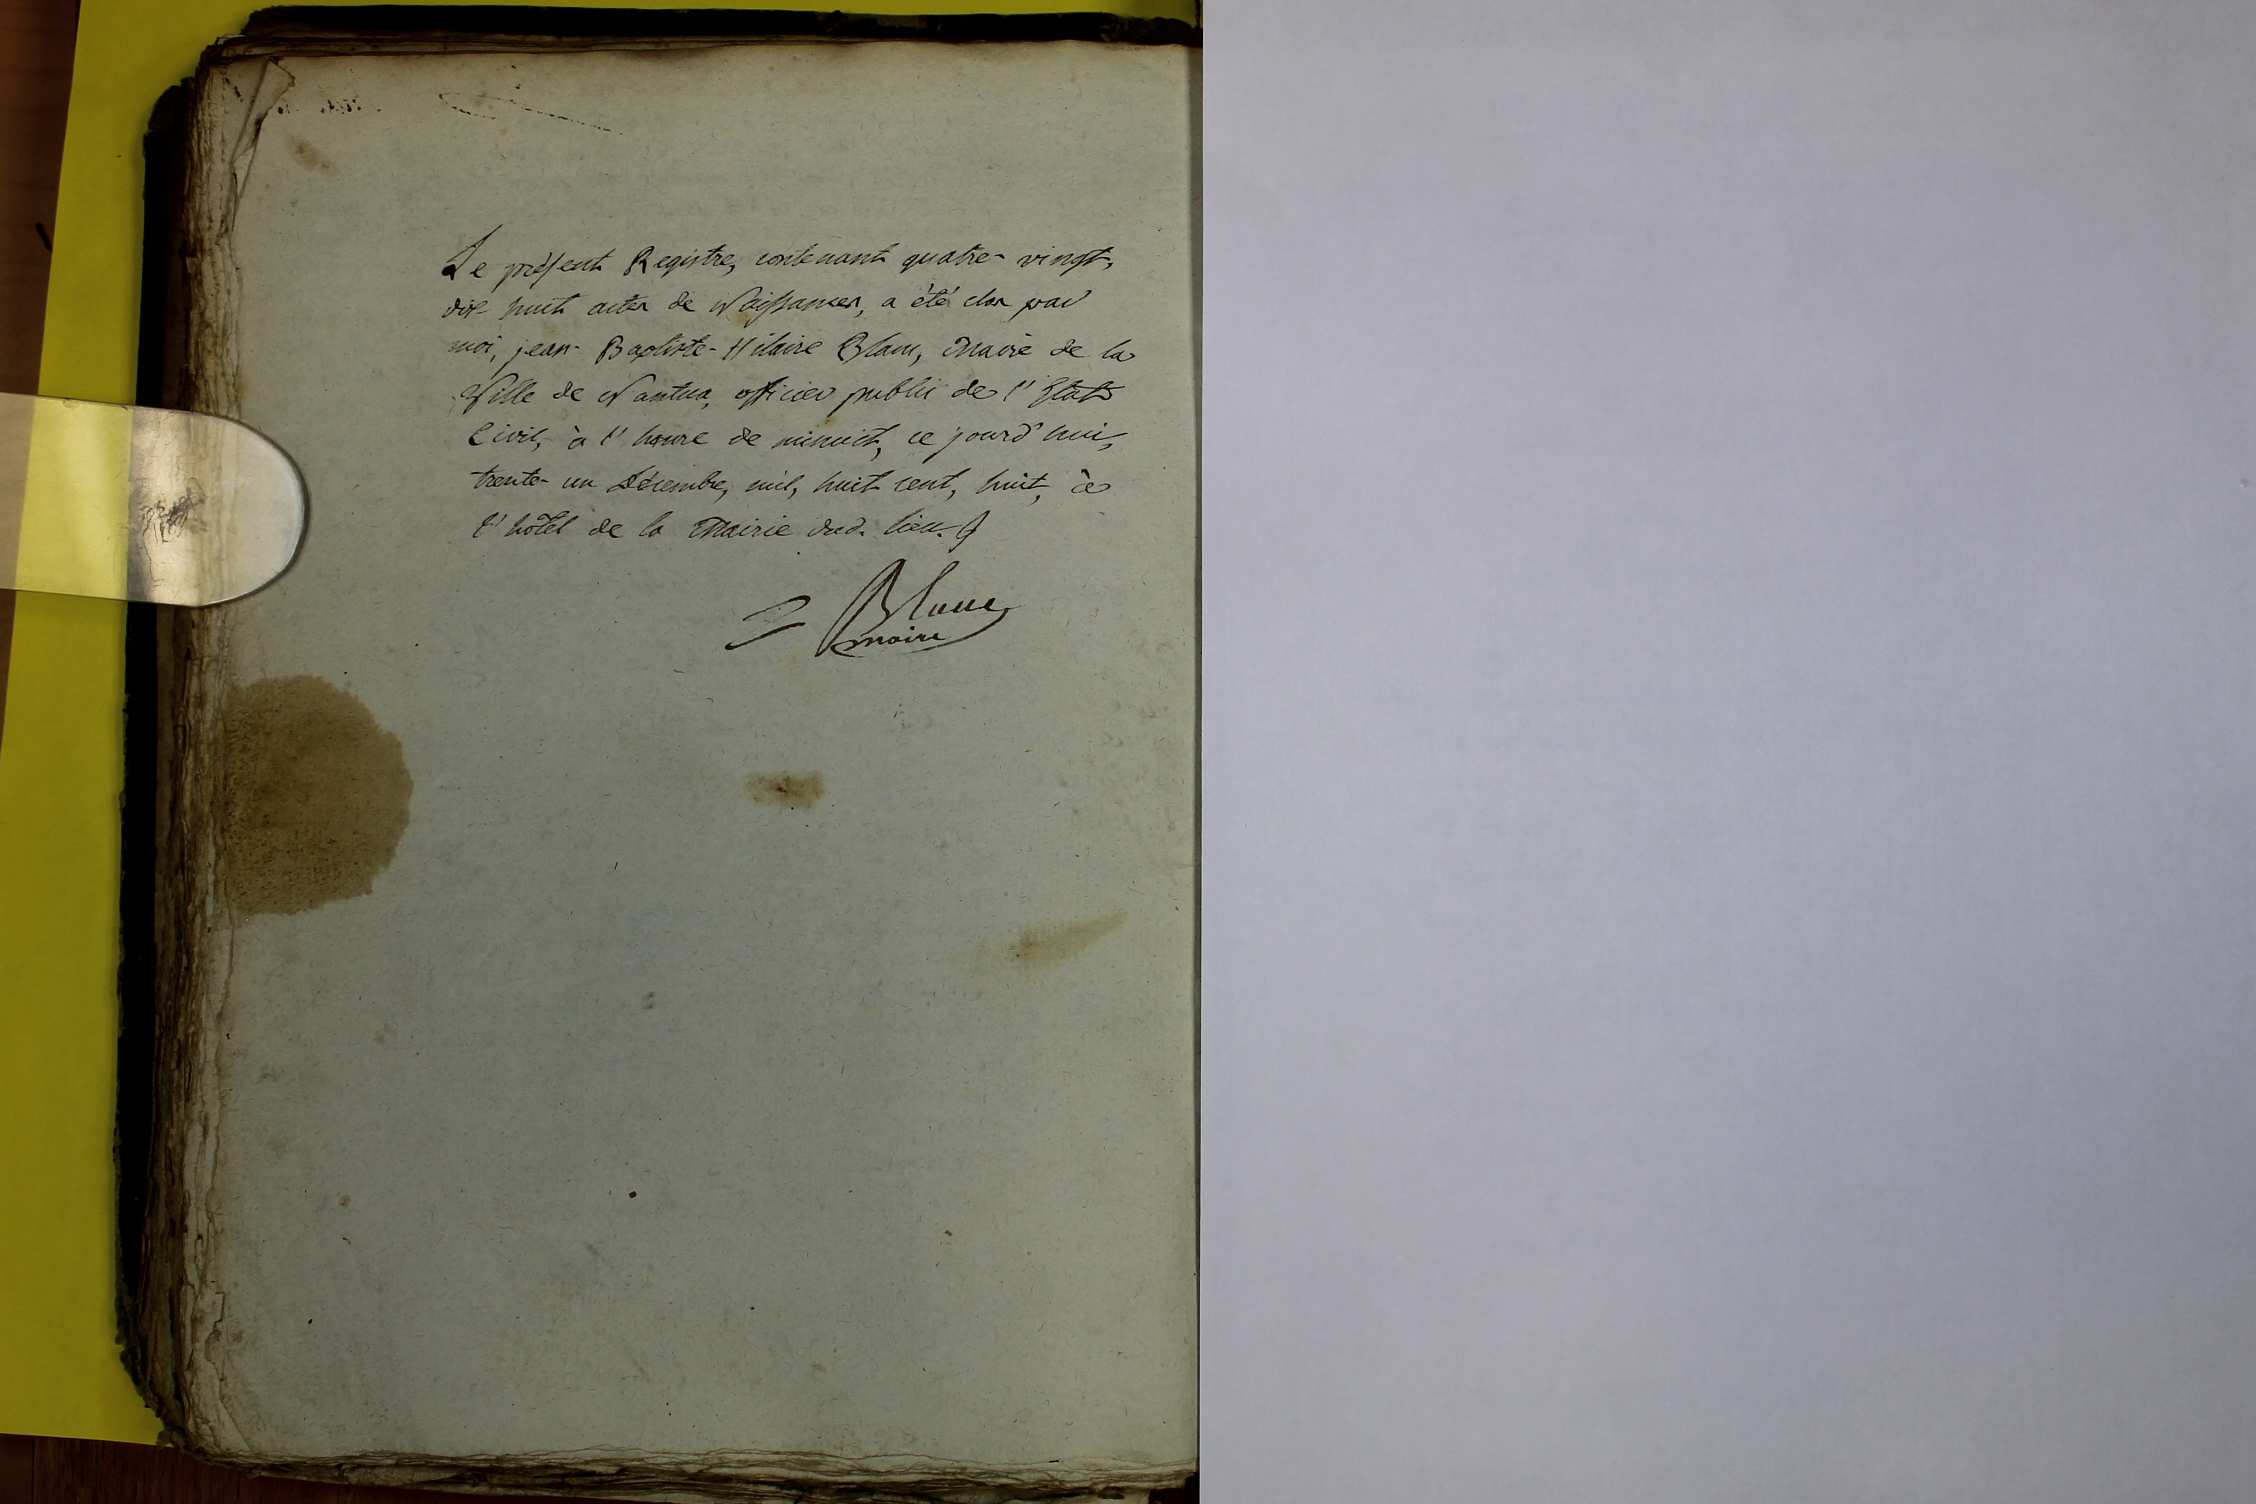 Le présent Registre, contenant quatre-vingt,
dix-huit actes de Naissances, a été clos par
moi, jean-Baptiste-Hilaire Blanc, Maire de la
Ville de Nantua, officier public de l'Etat
Civil, à l'heure de minuit, ce jourd'hui,
trente-un Décembre, mil, huit cent, huit, à
l'hôtel de la Mairie dud. lieu.
Blanc
maire